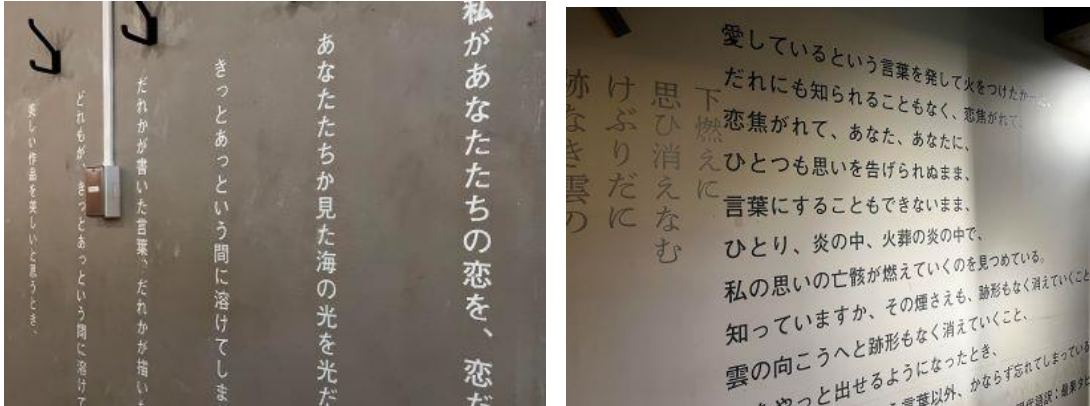 私があなたたちの恋を、恋だ
あなたたちが見た海の光を光だ
きっとあっという間に溶けてしま
だれかが書いた言葉、だれかが描いた
どれもが、きっとあっという間に溶けて
美しい作品を美しいと思うとき、
愛しているという言葉を発して火をつけたか
だれにも知られることもなく、恋焦がれて
恋焦がれて、あなた、あなたに、
ひとつも思いを告げられぬまま、
言葉にすることもできないまま、
ひとり、炎の中、火葬の炎の中で、
私の思いの亡骸が燃えていくのを見つめている。
知っていますか、その煙さえも、跡形もなく消えていくこと
雲の向こうへと跡形もなく消えていくこと、
やっと出せるようになったとき、
言葉以外、かならず忘れてしまっている
現代語訳：最果タヒ
下燃えに
思ひ消えなむ
けぶりだに
跡なき雲の